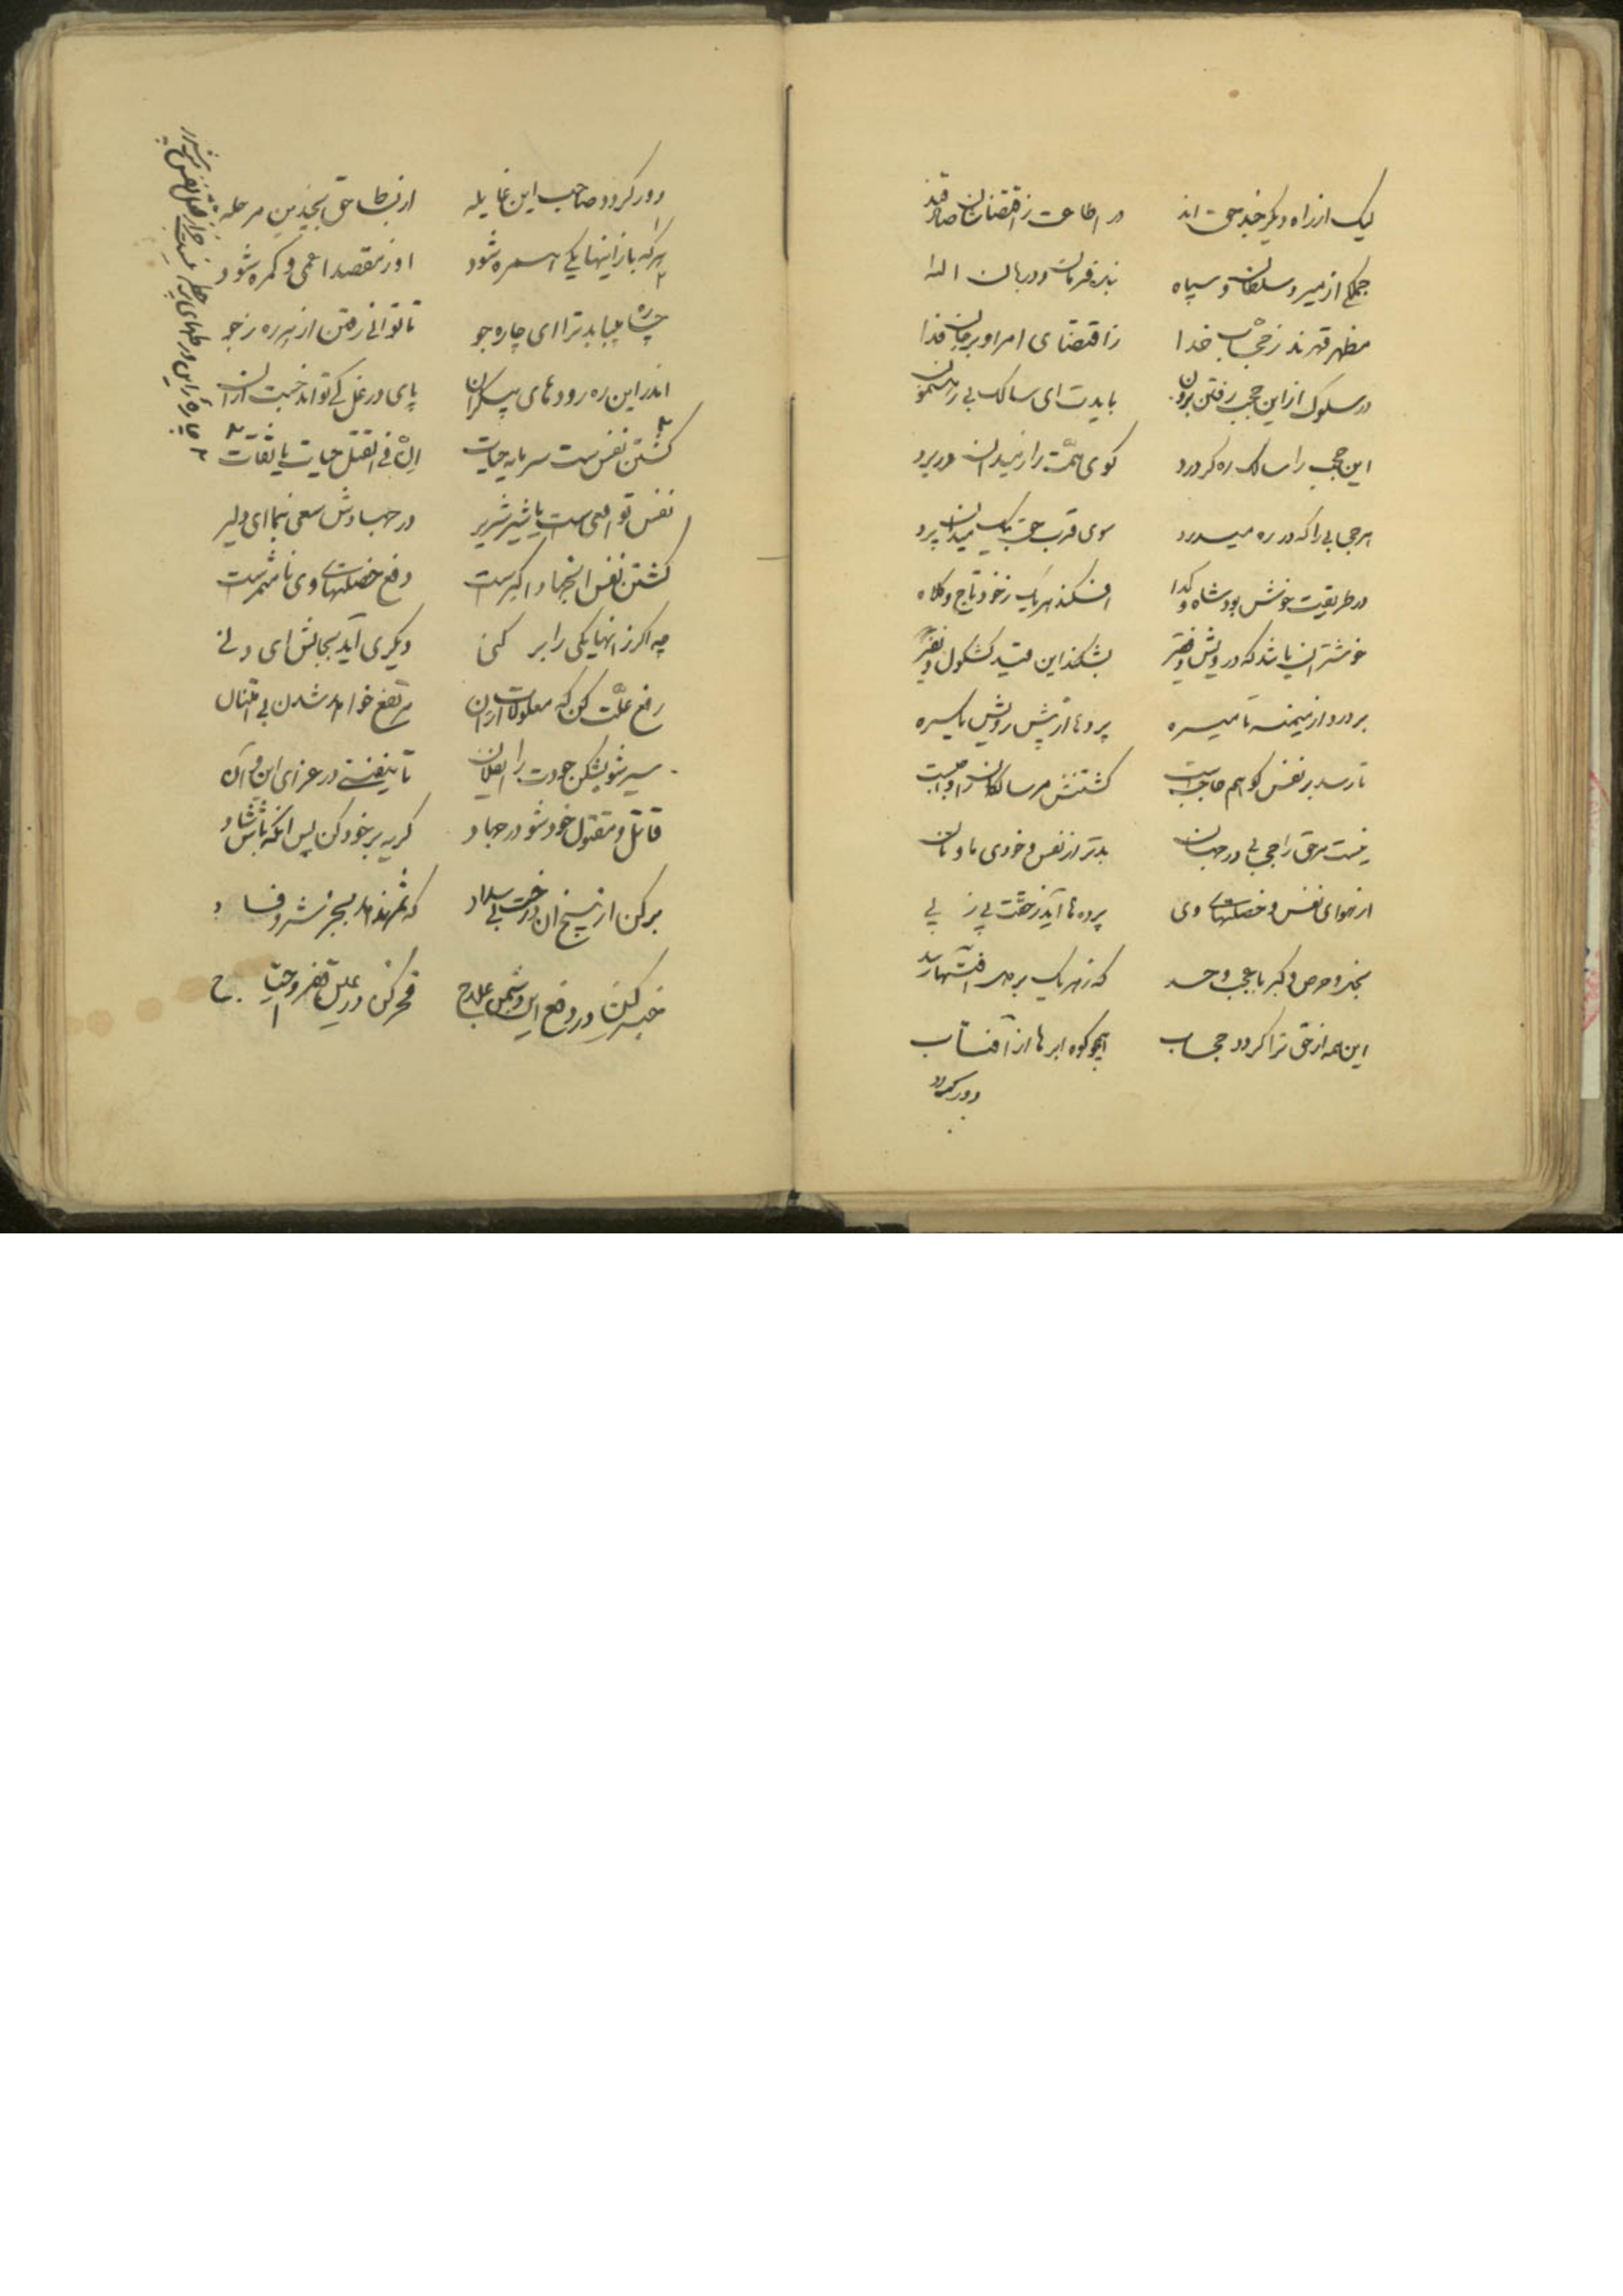 لیک از راه دیگر خیل حق اند در اطاعت ز اقتضاشان صادقند
جملگی از میر و سلطان و سپاه بنده فرمان و دربان اله
مظهر قهرند ز حجاب خدا ز اقتضای امر او برجان فدا
در سلوک از این حجب رفتن برون بایدت ای سالک بی رهنمون
این حجب را سالک ره گر درد گوی همت را ز میدان در برد
هر حجابی را که در ره میدرد سوی قرب حق بیک میدان پرد
در طریقت خوش بود شاه و گدا افکند هریک ز خود تاج و کلاه
خوشتر آن باشد که درویش و فقیر بشکند این قید کشکول و نفیر
بر درد از میمنه تا میسره پرده‌ها از پیش رویش یکسره
تا رسد بر نفس کو هم حاجب است کشتنش مر سالکان را واجب است
نیست مر حق را حجابی در جهان بدتر از نفس و خودی ما و مان
از هوای نفس و خصلتهای وی پرده ها آید ز حقت پی ز پی
بخل و حرص و کبر با عجب و حسد که ز هر یک بر
این همه از حق ترا گردد حجاب همچو کوه ابرها از آفتاب
دور گردد
دور گردد صاحب این غایله از بساط حق بچندین مرحله
هر که باز اینها یکی همره شود او ز مقصد اعمی و گمره شود
چاره میباید ترا ای چاره جو تا توانی رفتن از
اندر این ره رودهای بیکران پای در غل کی تواند جست از آن
کشتن نفس ست سرمایه حیات ان فی القتل حیات یا ثقات
نفس تو افعی ست یا شیر شریر در جهادش سعی بنما ای دلیر
کشتن نفس از جهاد اکبرست دفع خصلتهای وی نامثمرست
چه اگر ز انها یکی را بر کنی دیگری آید بجایش ای دنی
رفع علت کن که معلولات از آن مرتفع خواهد شدن بی امتنان
سیر شو بشکن خودت را تا نیفتی در عزای این و آن
قاتل و مقتول خود شو در جهاد گریه بر خود کن پس آنگه باش شاد
بر کن از بیخ آن درخت بی سداد که ثمر ندهد بجز شر و فساد
خیز کن در دفع این دشمن علاج فخر کن در عین فقر و احتیاج
چاره این درطهای نیست جز از قتل نفس